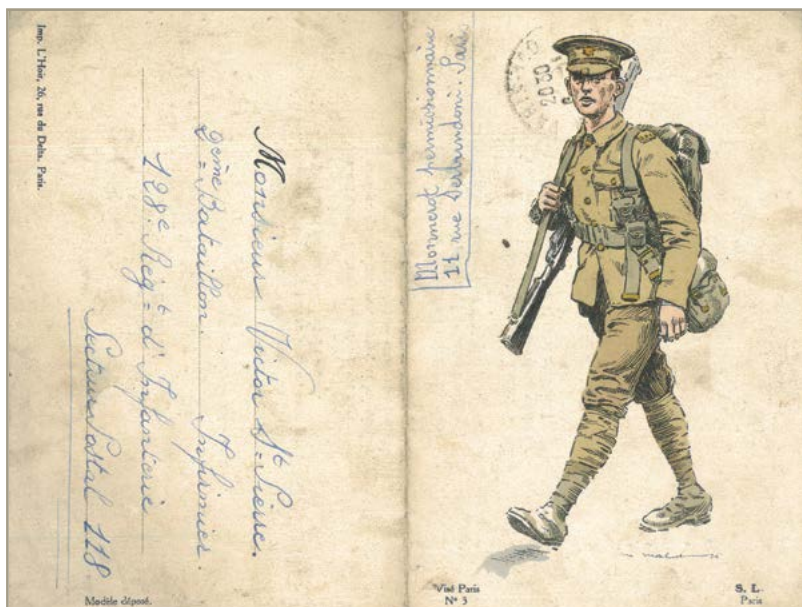 Imp. L'Hoir, 26, rue du Delta. Paris.
Monsieur Victor St-Pierre.
9ème Bataillon. Infirmier.
128e Régt d'Infanterie
Secteur Postal 118.
Modèle déposé.
permissionnaire
11 rue Servandoni. Paris
20 30
Visé Paris
N° 3
S. L.
Paris